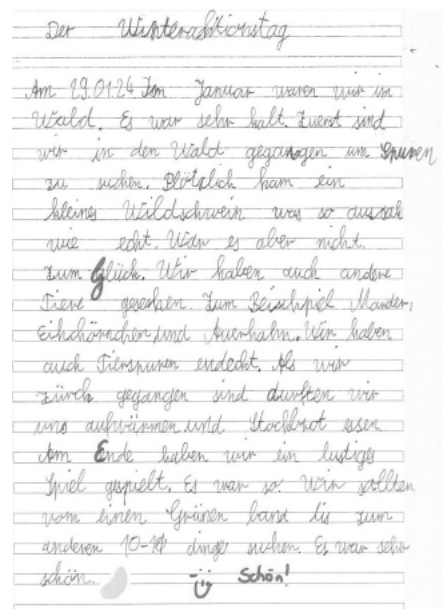 Der Winteraktionstag
Am 29.01.24 Im Januar waren wir im
Wald. Es war sehr kalt. Zuerst sind
wir in den Wald gegangen um Spuren
zu suchen. Plötzlich kam ein
kleines Wildschwein was so aussah
wie echt. War es aber nicht.
Zum Glück. Wir haben auch andere
Tiere gesehen. Zum Beischpiel Marder,
Eihchörnchen und Auerhahn. Wir haben
auch Tierspuren endeckt. Als wir
zürck gegangen sind durften wir
uns aufwärmen und Stockbrot essen.
Am Ende haben wir ein lustiges
Spiel gespielt. Es war so. Wir sollten
vom einen Grünen band bis zum
anderen dinge suchen. Es war sehr
schön. Schön!